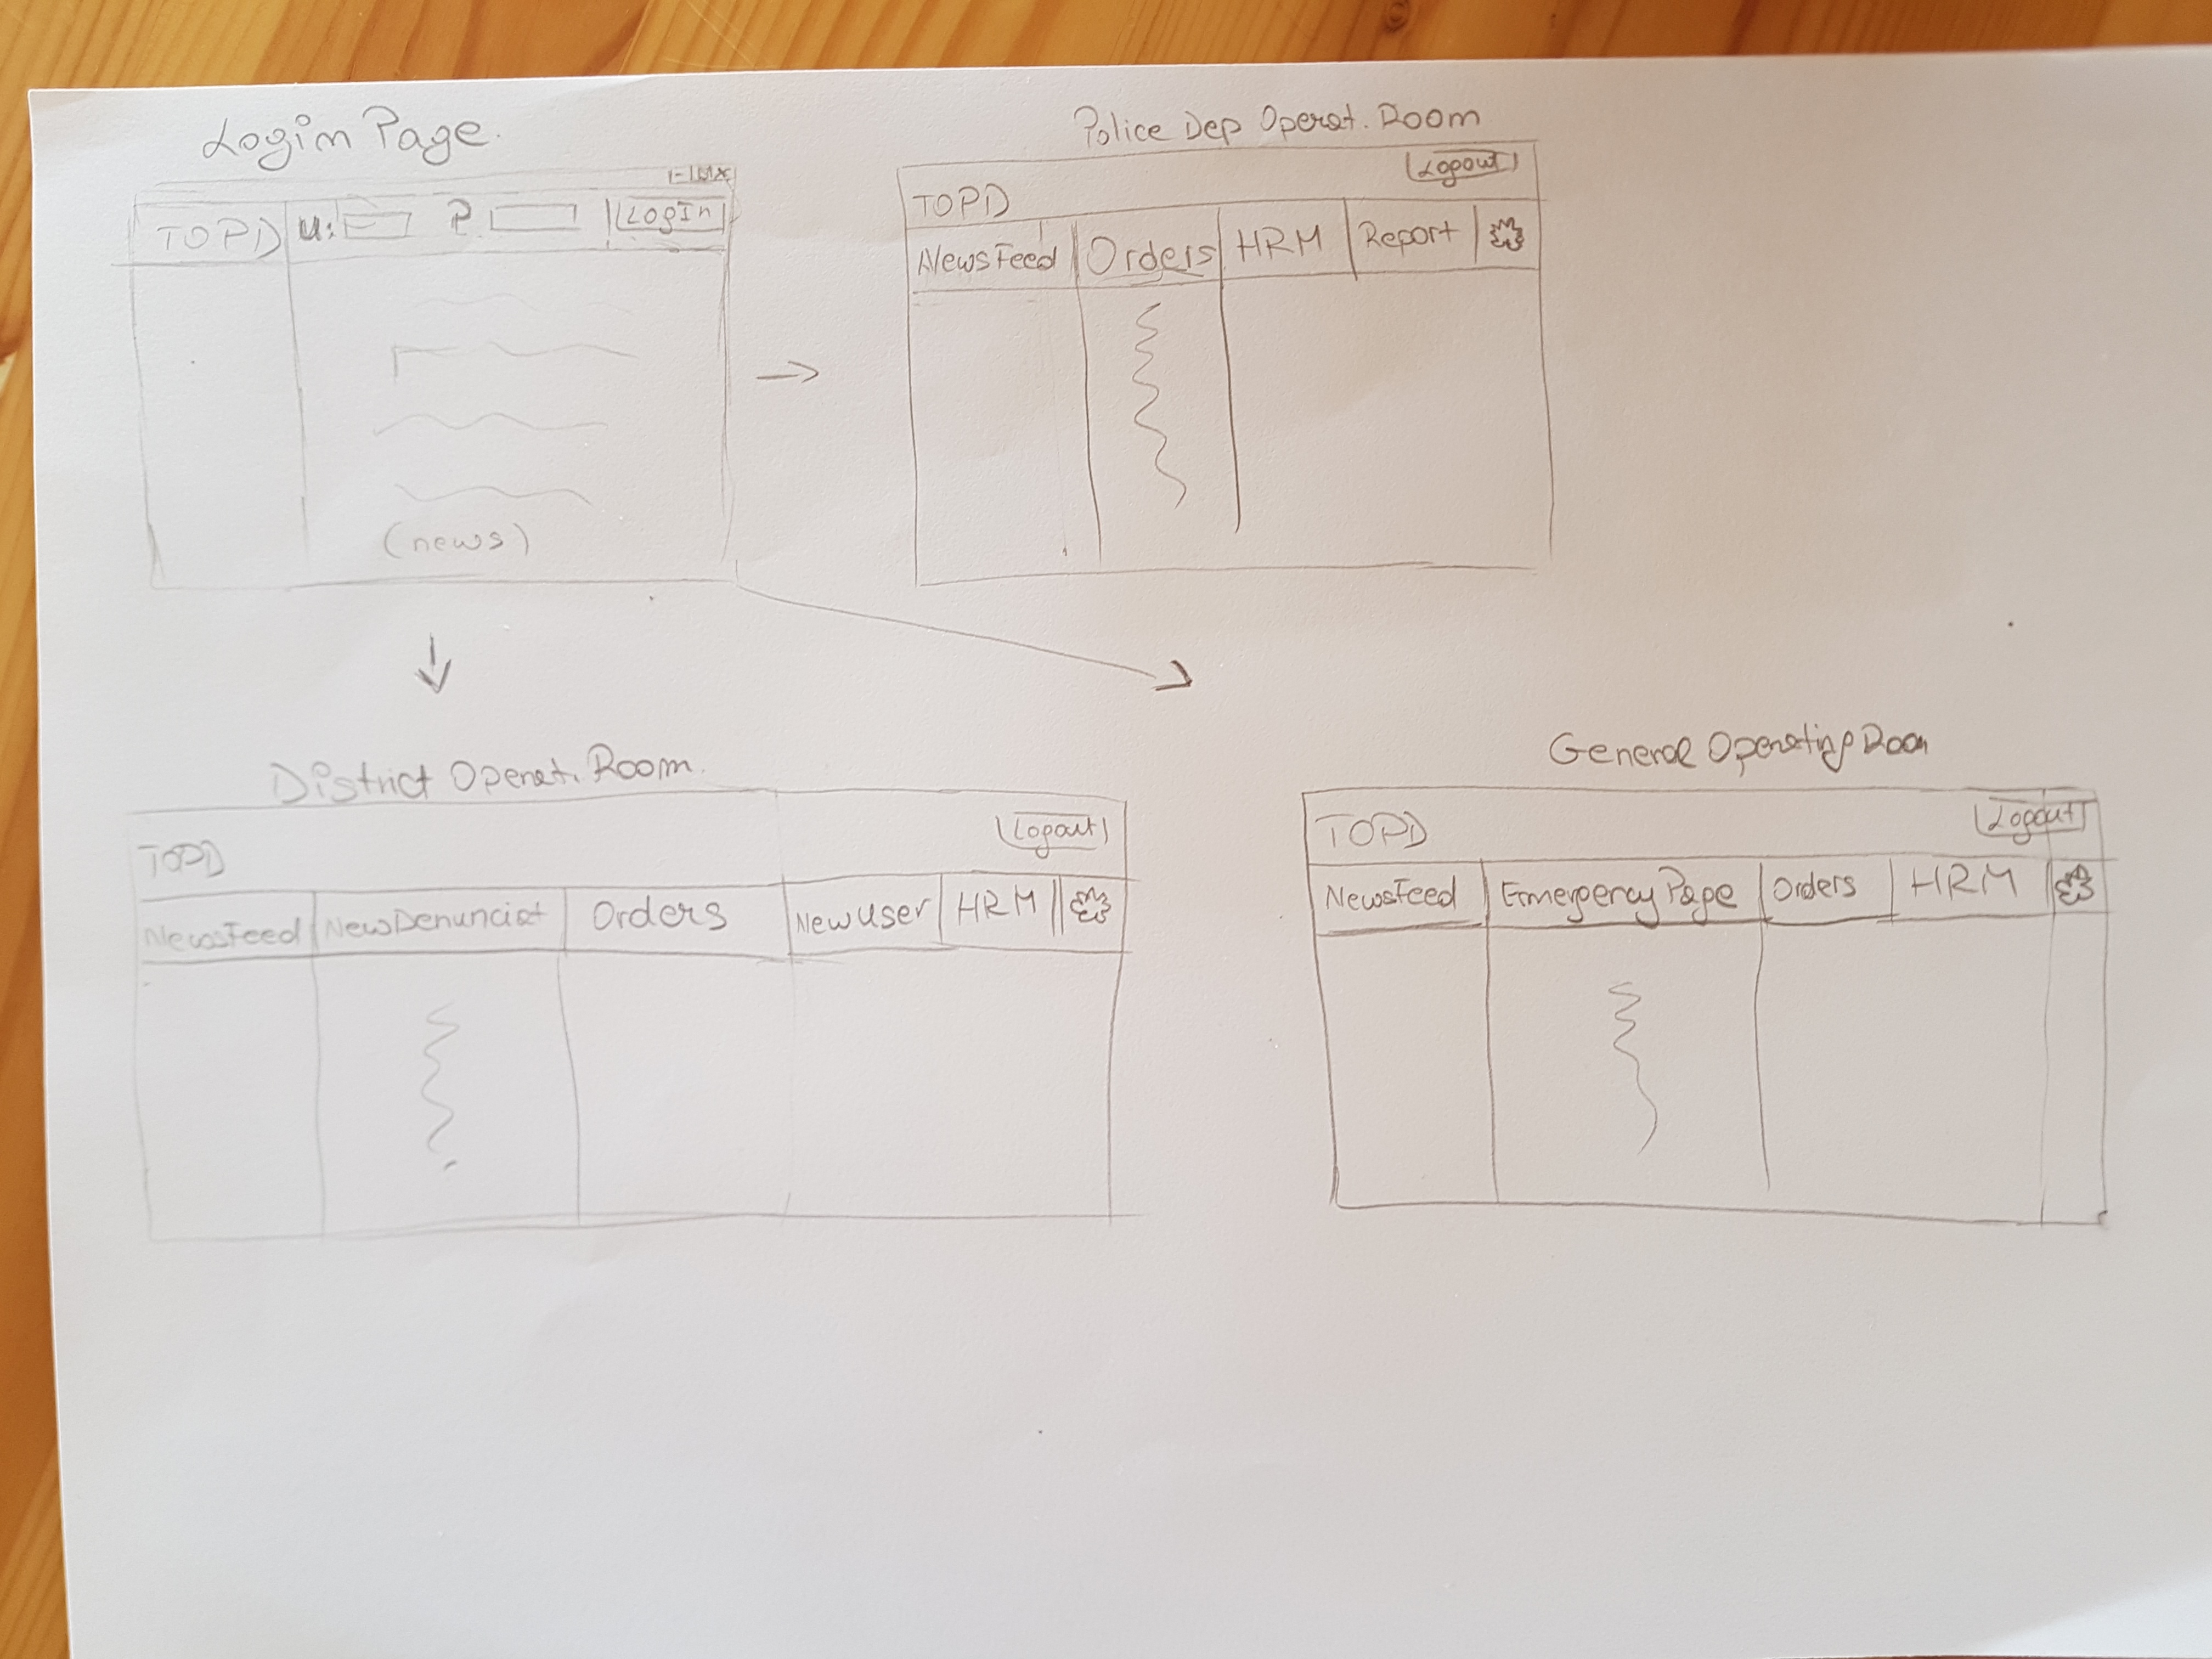 Login Page.
-|□|x
TOPD U: P Login
(news)
Police Dep Operat. Room
Logout
TOPD
NewsFeed Orders HRM Report
District Operat. Room.
TOPD Logout
NewsFeed NewDenunciat Orders NewUser HRM
General Operating Room
TOPD Logout
NewsFeed Emergency Page Orders HRM